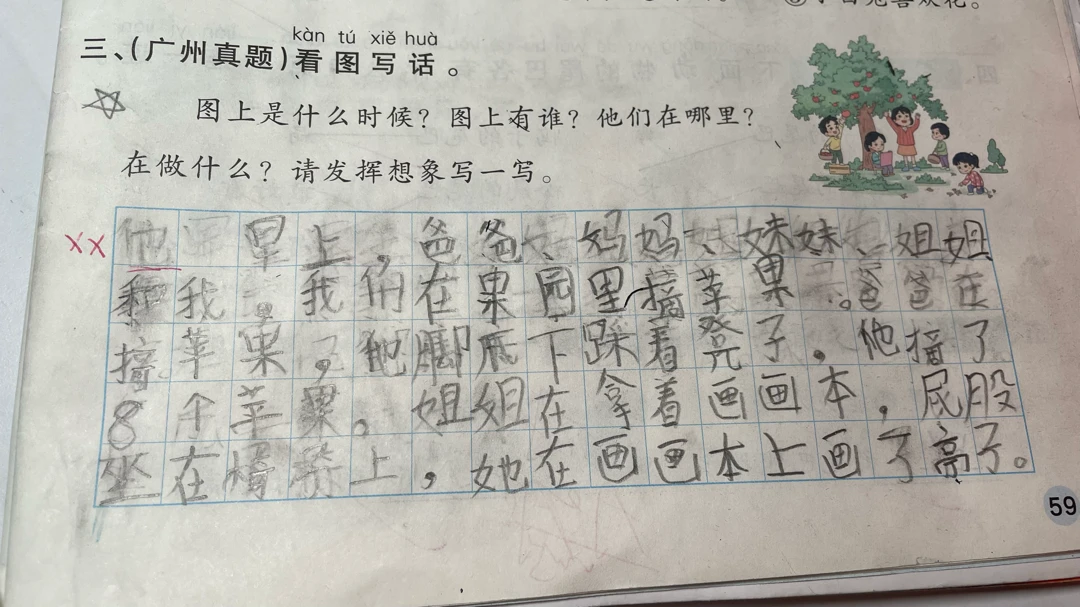 kàn tú xiě huà
三、(广州真题)看图写话。
图上是什么时候？图上有谁？他们在哪里？
在做什么？请发挥想象写一写。
早上，爸爸、妈妈、妹妹、姐姐
和我。我们在果园里摘苹果。爸爸在
摘苹果，他脚底下踩着凳子，他摘了
8个苹果。姐姐在拿着画画本，屁股
坐在椅凳上，她在画画本上画了亭子。
59